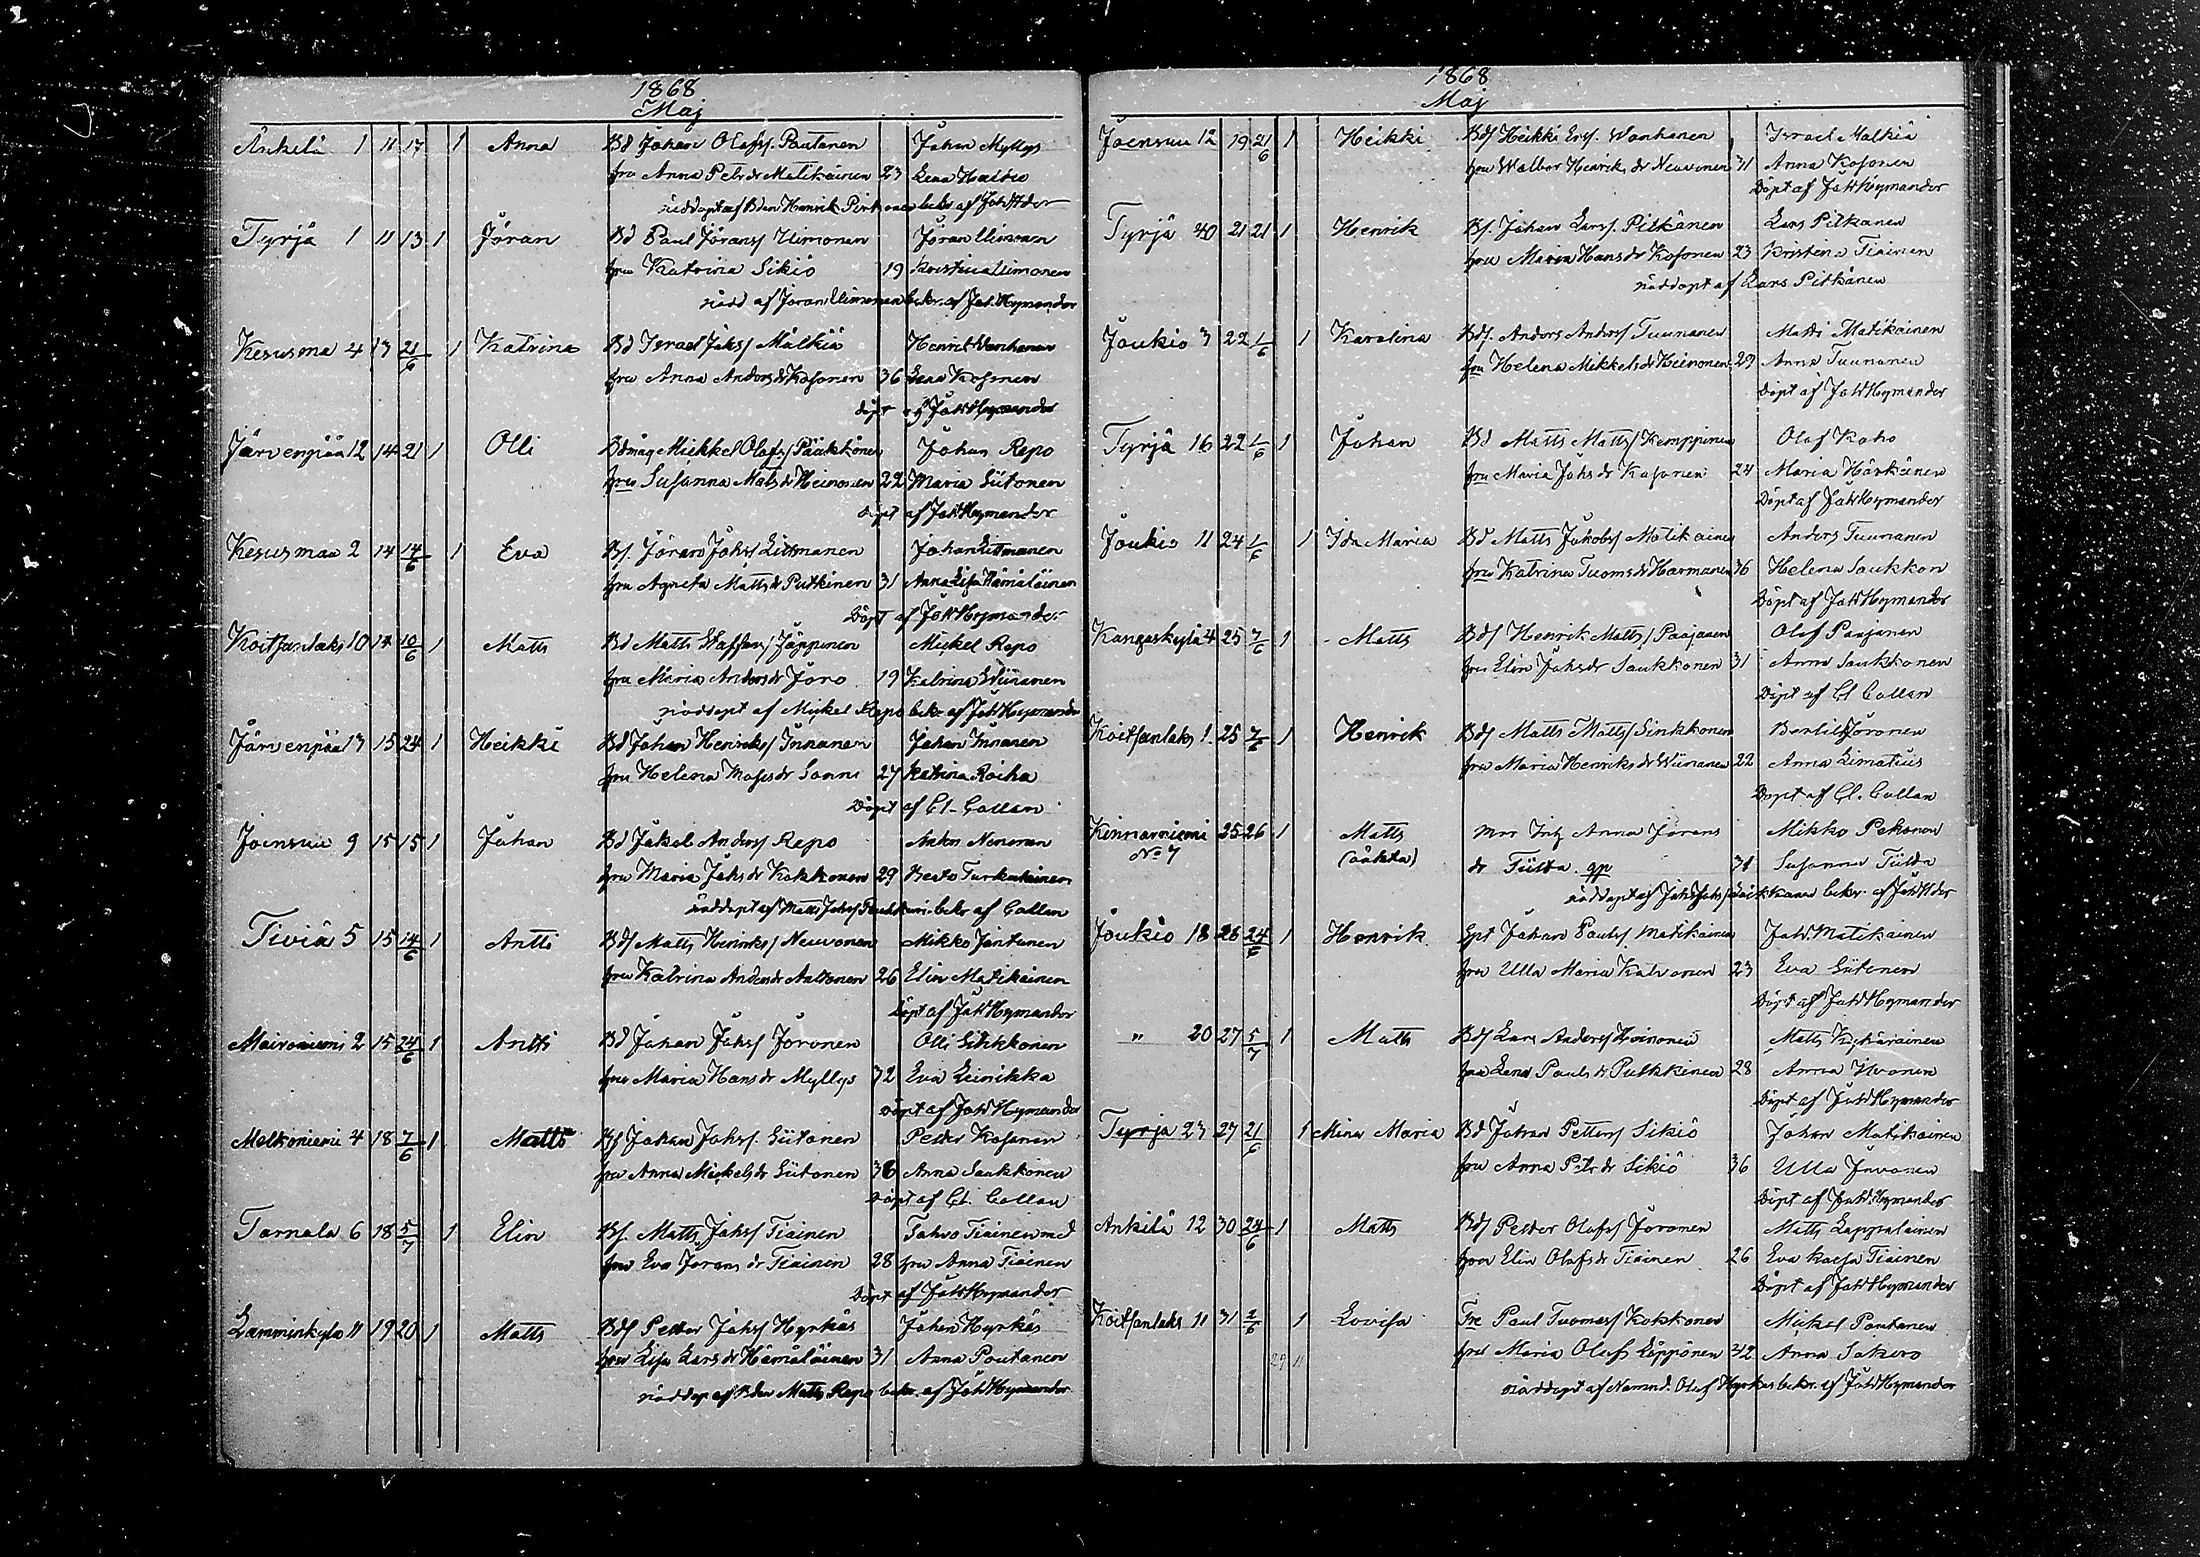 1868
Maj
Ankilä 1 11 17 1 Anna Bd Johan Olofss. Pautanen Johan Myllys
fru Anna Petrdr Matikainen 23 Lena
nöddöpt af Bden Henrik bekr. af Joh Hder
Tyrjä 1 11 13 1 Jöran Bd Paul Jöranss Uimonen Jöran Uimonen
fru Katrina Sikiö 19 Kristina Uimonen
nödd af Jöran Uimonen bekr. af Joh. Hymander
Kesusmaa 4 13 21/6 1 Katrina Bd Israel Johss Malkiä Henrik Wanhanen
fru Anna Andersdr Kosonen 36 Lena Kosonen
döpt af Joh Hymander
Järvenpää 12 14 21 1 Olli Bdmåg Mickel Olofss Pääkkönen Johan Repo
fru Susanna Matsdr Heinonen 22 Maria Siitonen
Döpt af Joh Hymander
Kesusmaa 2 14 14/6 1 Eva Bf. Jöran Johss Littmanen Johan Littmanen
fru Agneta Mattsdr Putkinen 31 Anna Lisa Hämäläinen
Döpt af Joh Hymander
Koitsanlaks 10 14 10/6 1 Matts Bd Matts Staffanss Jäppinen Mickel Repo
fru Maria Andersdr Joro 19 Katrina Wiinanen
nöddöpt af Mickel Repo bekr. af Joh Hymander
Järvenpää 13 15 24 1 Heikki Bd Johan Henrikss Innanen Johan Innanen
fru Helena Mosisdr Sonni 27 Katrina Roiha
Döpt af Cl. Collan
Joensuu 9 15 15 1 Johan Bd Jakob Anderss Repo Anders Nenonen
fru Maria Johsdr Kokkonen 29 Beata Turkulainen
nöddöpt af Matts Johss bekr af Collan
Tiviä 5 15 14/6 1 Antti Bds Matts Henrikss Neuvonen Mikko Jantunen
fru Katrina Andersdr Anttonen 26 Elin Matikainen
Döpt af Joh Hymander
Moironiemi 2 15 24/6 1 Antti Bd Johan Johss Joronen Olli Sinkkonen
fru Maria Hansdr Myllys 32 Eva Leinikka
Döpt af Joh Hymander
Melkoniemi 4 18 7/6 1 Matts Bf Johan Johss. Siitonen Petter Kosonen
fru Anna Mickelsdr Siitonen 38 Anna Saukkonen
Döpt af Cl. Collan
Tarnala 6 18 5/7 1 Elin Bf. Matts Johss Tiainen Tahvo Tiainen med
fru Eva Jöransdr Tiainen 28 fru Anna Tiainen
Döpt af Joh Hymander
Lamminkylä 11 19 20 1 Matts Bds Petter Johss Hyrkäs Johan Hyrkäs
fru Lisa Larsdr Hämäläinen 31 Anna Poutanen
nöddöp af Bden Matts Repo bekr. af Joh Hymander
1868
Maj
Joensuu 12 19 21/6 1 Heikki Bds Heikki Erss. Wanhanen Israel Malkiä
fru Walbor Henriksdr Neuvonen 31 Anna Kosonen
Döpt af Joh Hymander
Tyrjä 40 21 21 1 Henrik Bs. Johan Larss. Pitkänen Lars Pitkänen
fru Maria Hansdr Kosonen 23 Kristina Tiainen
nöddöpt af Lars Pitkänen
Joukio 3 22 1/6 1 Karolina Bds. Anders Anderss Tuunanen Matts Matikainen
fru Helena Mickelsdr Heinonen 29 Anna Tuunanen
Döpt af Joh Hymander
Tyrjä 16 22 1/6 1 Johan Bd Matts Matts/Kemppinen Olof Koho
fru Maria Johsdr Kosonen 24 Maria Härkönen
Döpt af Joh Hymander
Joukio 11 24 1/6 1 Ida Maria Bd Matts Jakobss Matikainen Anders Tuunanen
fru Katrina Tuomsdr Harmanen 36 Helena Saukkon
Döpt af Joh Hymander
Kangaskylä 4 25 7/6 1 Matts Bds Henrik Matts/Paajanen Olof Paajanen
fru Elin Johsdr Saukkonen 31 Anna Saukkonen
Döpt af Cl Collan
Koitsanlaks 1 25 7/6 1 Henrik Bds Matts Matts/Sinkkonen Bertil Joronen
fru Maria Henriksdr Wiinanen 22 Anna Limatius
Döpt af Cl. Collan
Kinnarniemi 25 26 1 Matts Anna Jörans Mikko Pekonen
No 7 (oäkta) dr Tiitta 31 Susanna Tiitta
nöddöpt af Joh Johss bekr. af Joh Hder
Joukio 18 26 24/6 1 Henrik Spt Johan Paulss Matikainen Joh. Matikainen
fru Ulla Maria Katvonen 23 Eva Siitonen
Döpt af Joh Hymander
" 20 27 5/7 1 Matts Bds Lars Anderss Heinonen Matts Kykäräinen
fru Lena Paulsdr Putkkinen 28 Anna Ikonen
Döpt af Joh Hymander
Tyrjä 23 27 21/6 1 Mina Maria Bd Johan Petterss Sikiö Johan Matikainen
fru Anna Petrdr Sikiö 36 Ulla Invonen
Döpt af Joh. Hymander
Ankilä 12 30 24/6 1 Matts Bds Petter Olofss Joronen Matts Lappalainen
fru Elin Olofsdr Tiainen 26 Eva Kaisa Tiainen
Döpt af Joh Hymander
Koitsanlaks 11 31 2/6 1 Lovisa Paul Tuomass Kokkonen Mickel Poutanen
fru Maria Olofs Läppönen 32 Anna Sokuro
29 11
nöddöpt af Nämnd. Olof Hyrkäs bekr. af Joh Hymander